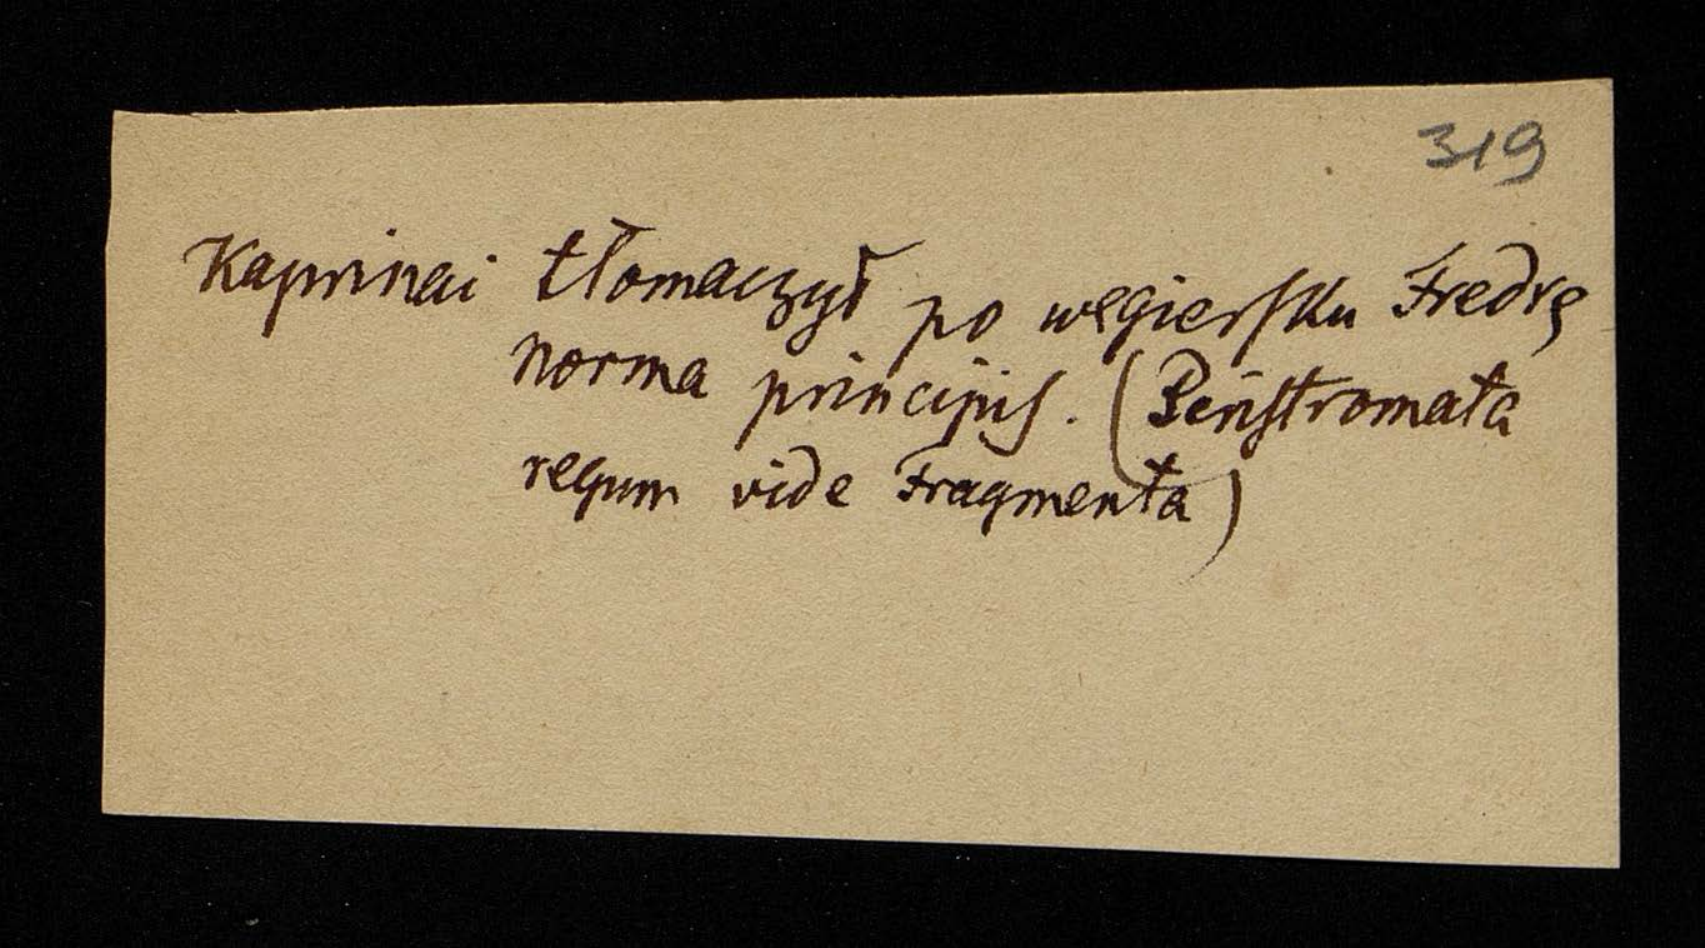 319
Kaprinai tłomaczył po węgiersku Fredrę
norma principis. (Peristromata
regum vide Fragmenta)